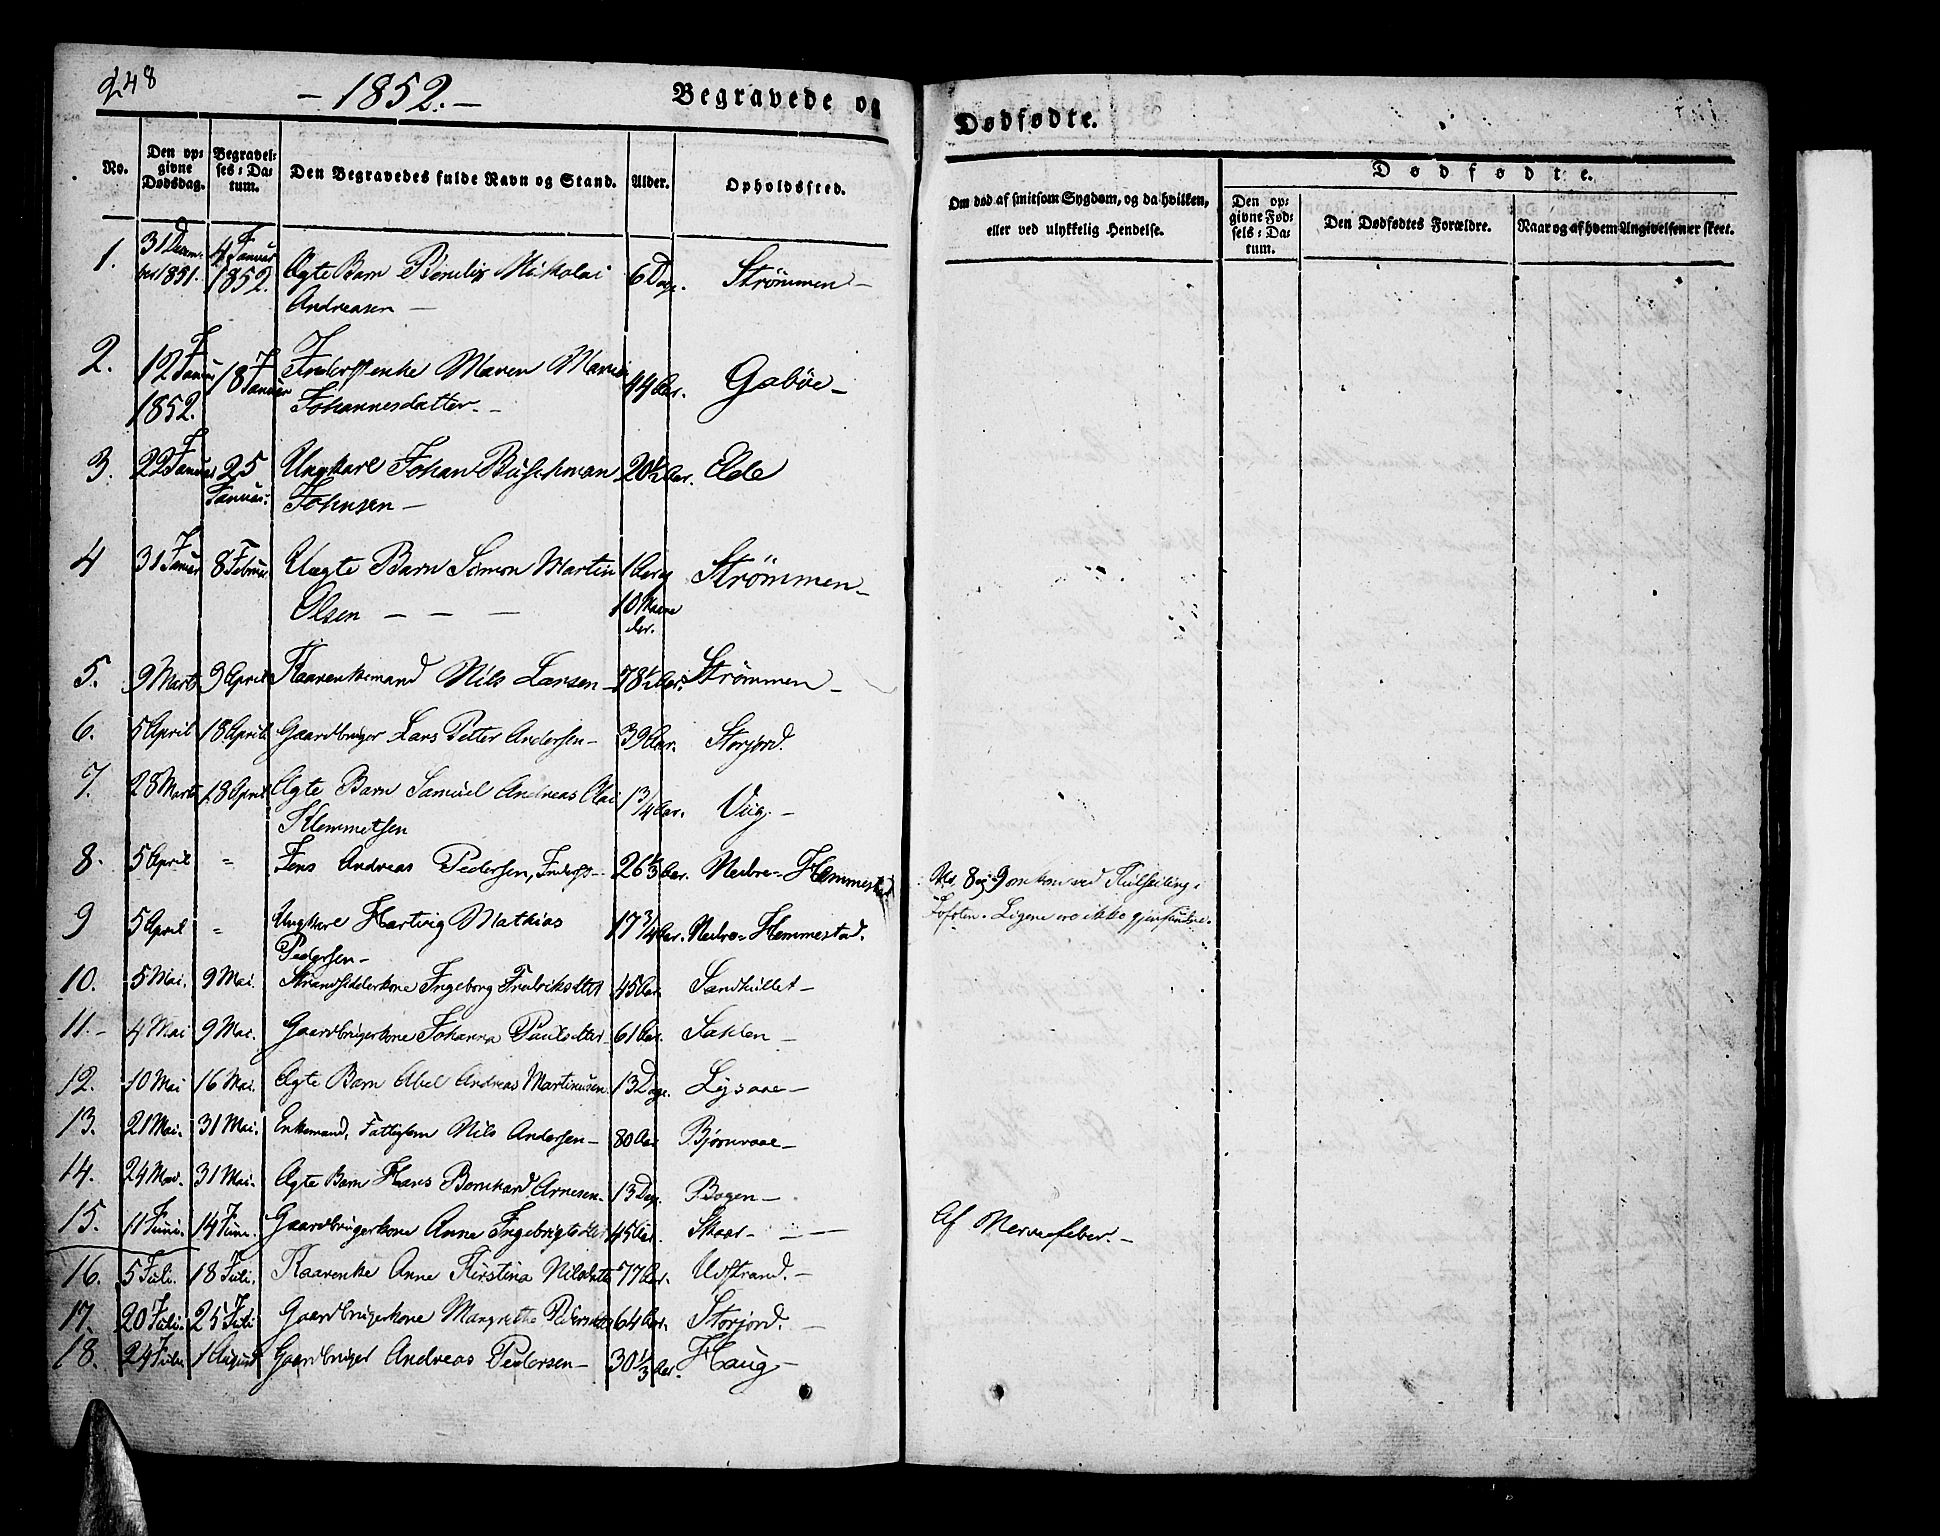 248
- 1852. -
Begravede og
Dødfødte.
No.
Den op-
givne
Dødsdag.
Begravel-
ses-Da-
tum.
Den Begravedes fulde Navn og Stand.
Alder.
Opholdssted.
Om død af smitsom Sygdom, og da hvilken,
eller ved ulykkelig Hendelse.
Dødfødte.
Den op-
givne Fød-
sels-Da-
tum.
Den Dødfødtes Forældre.
Naar og af hvem Angivelsen er skeet.
1. 31 Decem- 4 Januar
ber 1851. 1852. Ægte Barn Nikolai 6 Dage. Strømmen -
Andreasen -
2. 12 Januar 18 Januar Inderstenke Maren Maria 44 Aar. Gabøe -
1852. Johannesdatter. -
3. 22 Januar 25 Ungkarl Johan Buschman 20½ Aar. Elde
Januar. Johnsen -
4 31 Januar 8 Februar Uægte Barn Simon Martin 1 Aar og Strømmen -
Olsen - - - 10 Maane
der.
5. 9 Marts 9 April Kaarenkemand Nils Larsen - 78½ Aar. Strømmen -
6. 5 April 18 April Gaardbruger Lars Petter Andersen - 39 Aar. Storjord.
7. 28 Marts 18 April Ægte Barn Samuel Andreas Olai 1 3/4 Aar. Viig. -
Klemmetsen
8. 5 April " Jens Andreas Pedersen, Inderst - 26 1/3 Aar. Nedre-Hemmestad
No 8 og 9 omkom ved Kuilseiling i
9 5 April " Ungkarl Hartvig Mathias 17 3/4 Aar. Nedre-Hemmestad.
Lofoten. Ligene ere ikke gjenfundne.
Pedersen -
10. 5 Mai. 9 Mai. Strandsidderkone Ingeborg Fredriksdtter 45 Aar. Sandhullet -
11. - 4 Mai 9 Mai. Gaardbrugerkone Johanna Paulsdtter 61 Aar. -
12. 10 Mai 16 Mai. Ægte Barn Abel Andreas Martinusen. 13 Dage. Lysaae -
13. 21 Mai. 31 Mai. Enkemand, Fattiglem Nils Andersen - 80 Aar Bjørnraae -
14. 24 Mai. 31 Mai. Ægte Barn Hans Bernhard Arnesen. 13 Dage. Bogen -
15. 11 Juni. 14 Juni. Gaardbrugerkone Anne Ingebrigtsdtter 45 Aar. Skaar - - -
Af Nervefeber. -
16. 5 Juli. 18 Juli. Kaarenke Anne Kirstina Nilsdatter 77 Aar. Udstrand. -
17. 20 Juli. 25 Juli Gaardbrugerkone Margrethe Pedersdtter 64 Aar. Storjord. -
18. 24 Juli 1 August Gaardbruger Andreas Pedersen - 30 1/3 Aar. Haug -